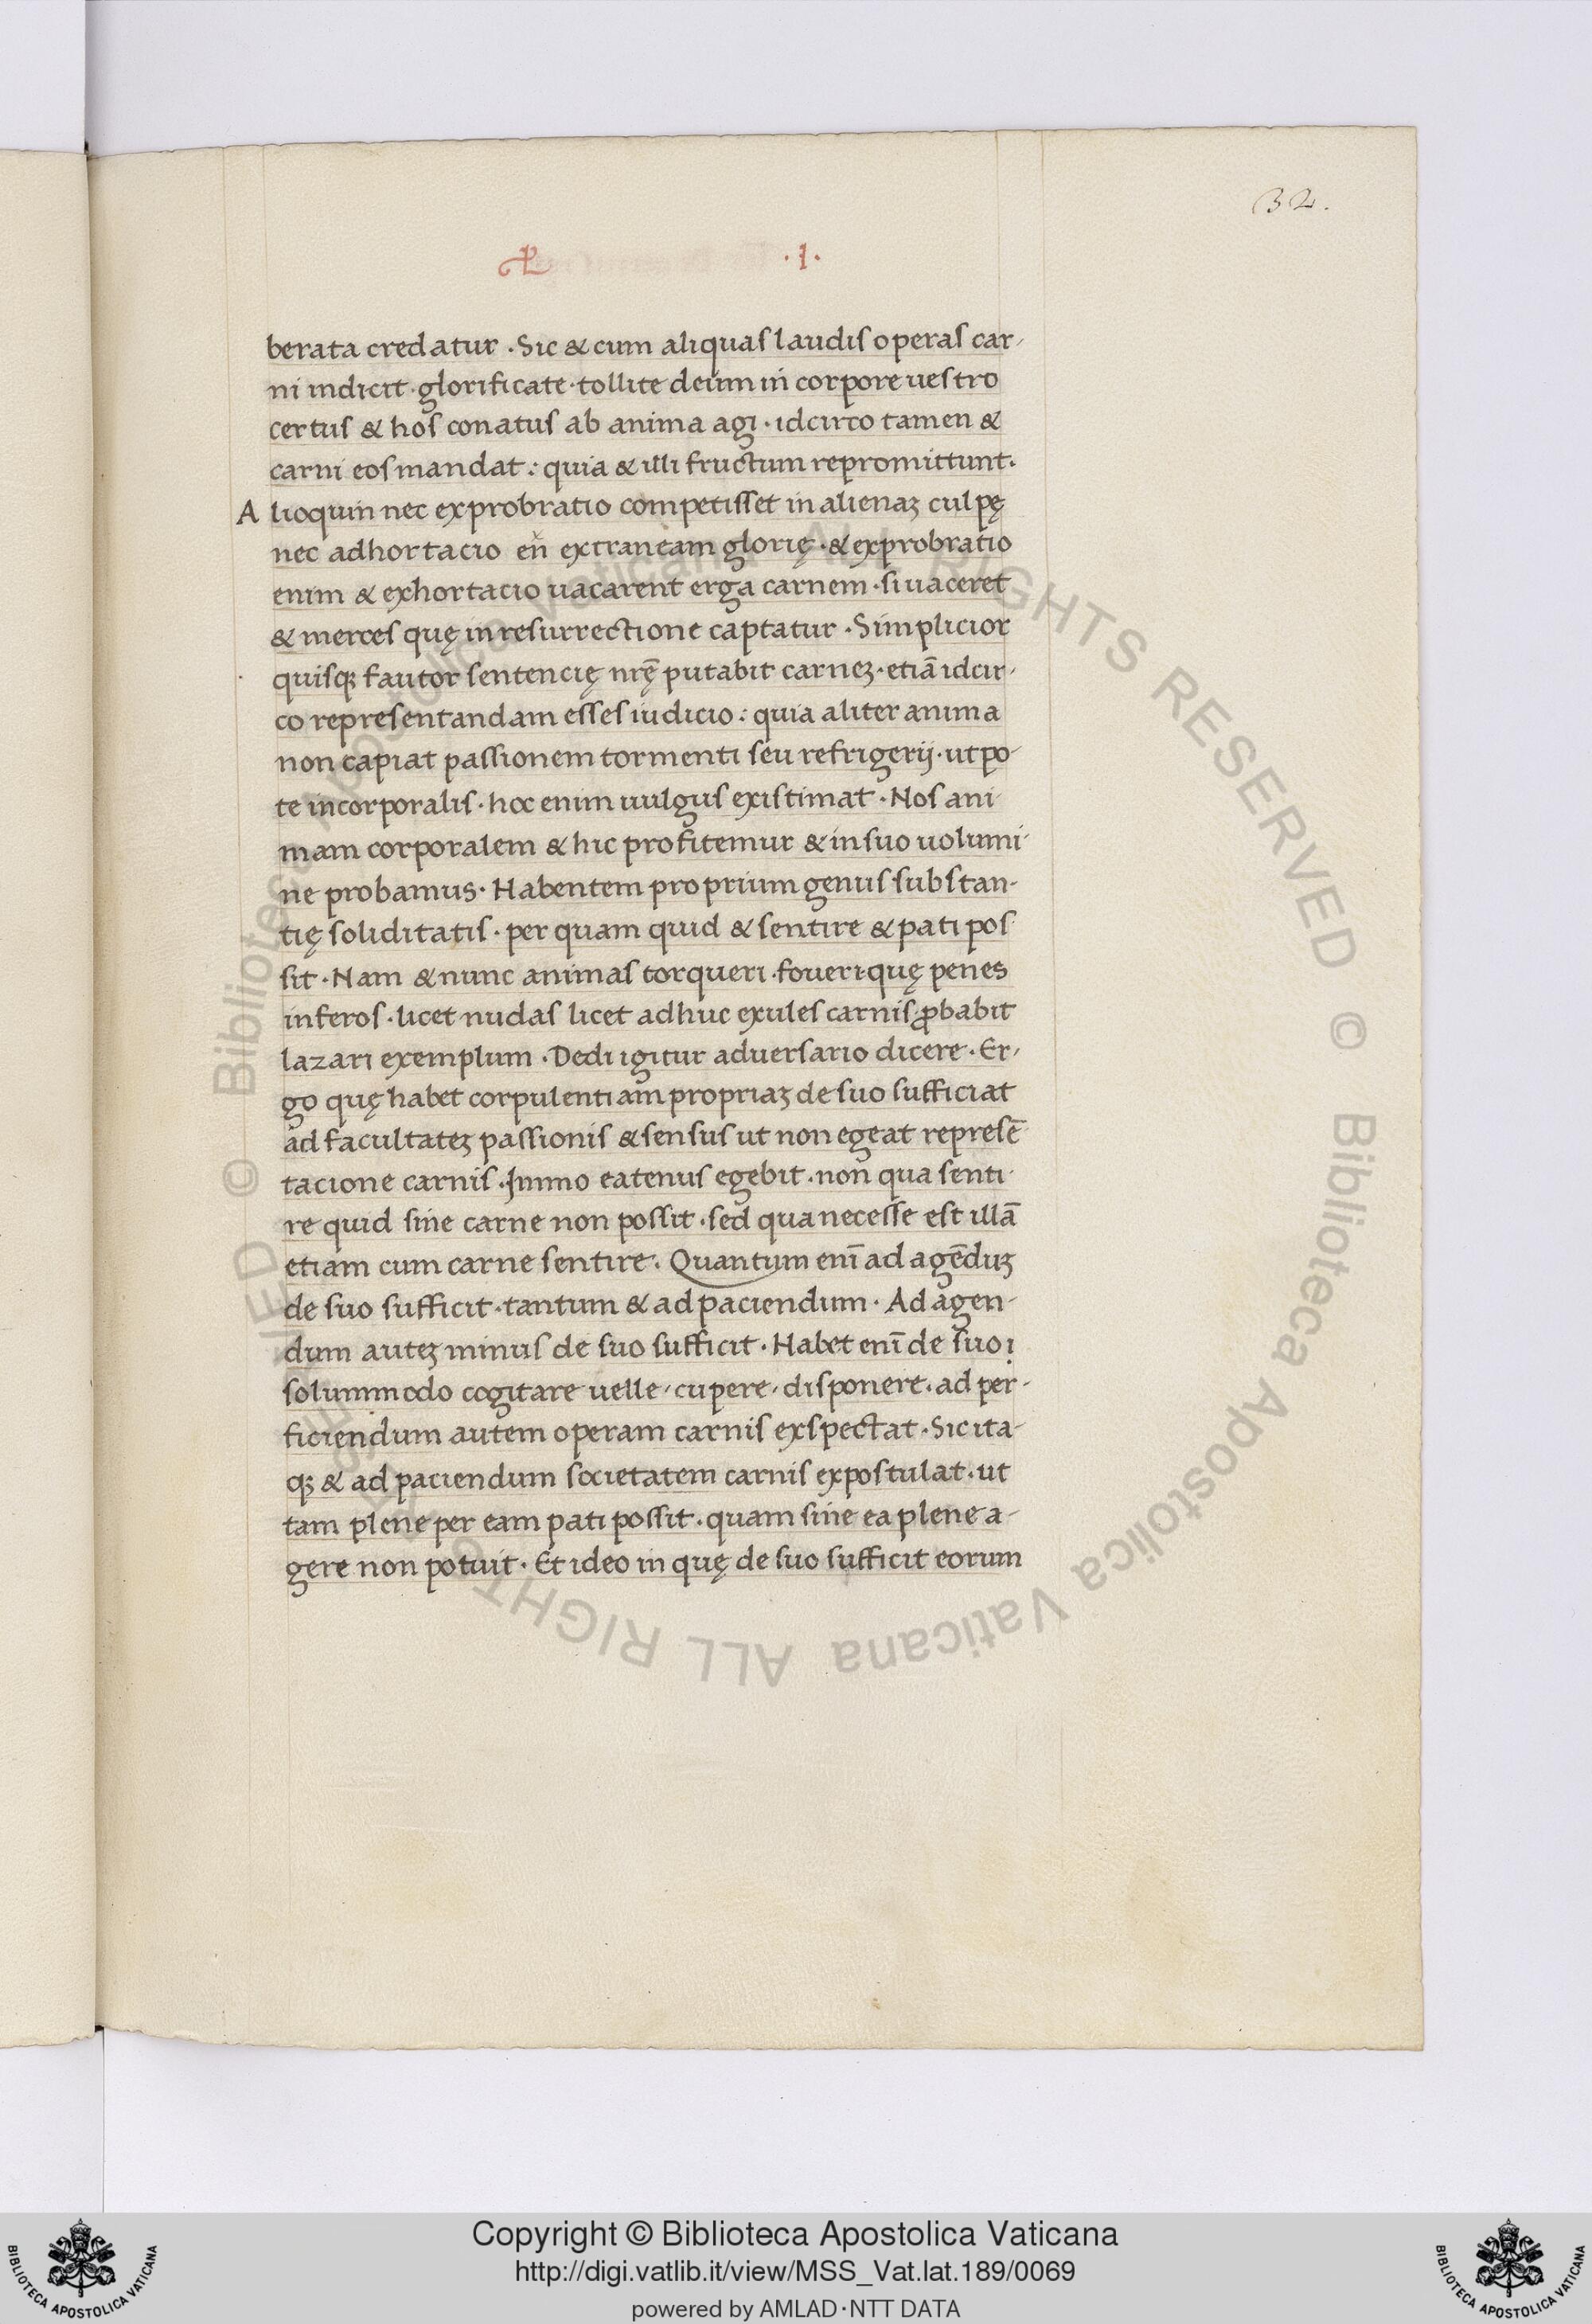 32.
·1·
berata credatur · Sic & cum aliquas laudis operas car-
ni indicit · glorificate · tollite deum in corpore uestro
certus & hos conatus ab anima agi · idcirco tamen &
carni eos mandat : quia & illi fructum repromittunt.
Alioquin nec exprobratio competisset in alienaꝫ culpę
nec adhortacio eñ extraneam glorię · & exprobratio
enim & exhortacio uacarent erga carnem · si uaceret
& merces quę in resurrectione captatur · Simplicior
quisqꝫ fautor sentencię nrę̄ putabit carneꝫ · etiā idcir-
co representandam esses iudicio : quia aliter anima
non capiat passionem tormenti seu refrigerij · utpo-
te incorporalis · hoc enim uulgus existimat · Nos ani-
mam corporalem & hic profitemur & in suo uolumi-
ne probamus · Habentem proprium genus substan-
tię soliditatis · per quam quid & sentire & pati pos-
sit · Nam & nunc animas torqueri · foueri quę penes
inferos · licet nudas licet adhuc exules carnis ꝓbabit
lazari exemplum · Dedi igitur aduersario dicere · Er-
go quę habet corpulentiam propriaꝫ de suo sufficiat
ad facultateꝫ passionis & sensus ut non egeat represē-
tacione carnis · Immo eatenus egebit · non qua senti-
re quid sine carne non possit · sed qua necesse est illā
etiam cum carne sentire · Quantum enī ad agēduꝫ
de suo sufficit · tantum & ad paciendum · Ad agen-
dum auteꝫ minus de suo sufficit · Habet enī de suo
solummodo cogitare uelle, cupere, disponere · ad per-
ficiendum autem operam carnis exspectat · Sic ita-
qꝫ & ad paciendum societatem carnis expostulat · ut
tam plene per eam pati possit · quam sine ea plene a-
gere non potuit · Et ideo in quę de suo sufficit eorum
© Biblioteca Apostolica Vaticana ALL RIGHTS RESERVED © Biblioteca Apostolica Vaticana ALL RIGHTS RESERVED
Copyright © Biblioteca Apostolica Vaticana
http://digi.vatlib.it/view/MSS_Vat.lat.189/0069
powered by AMLAD·NTT DATA
BIBLIOTECA APOSTOLICA VATICANA
BIBLIOTECA APOSTOLICA VATICANA